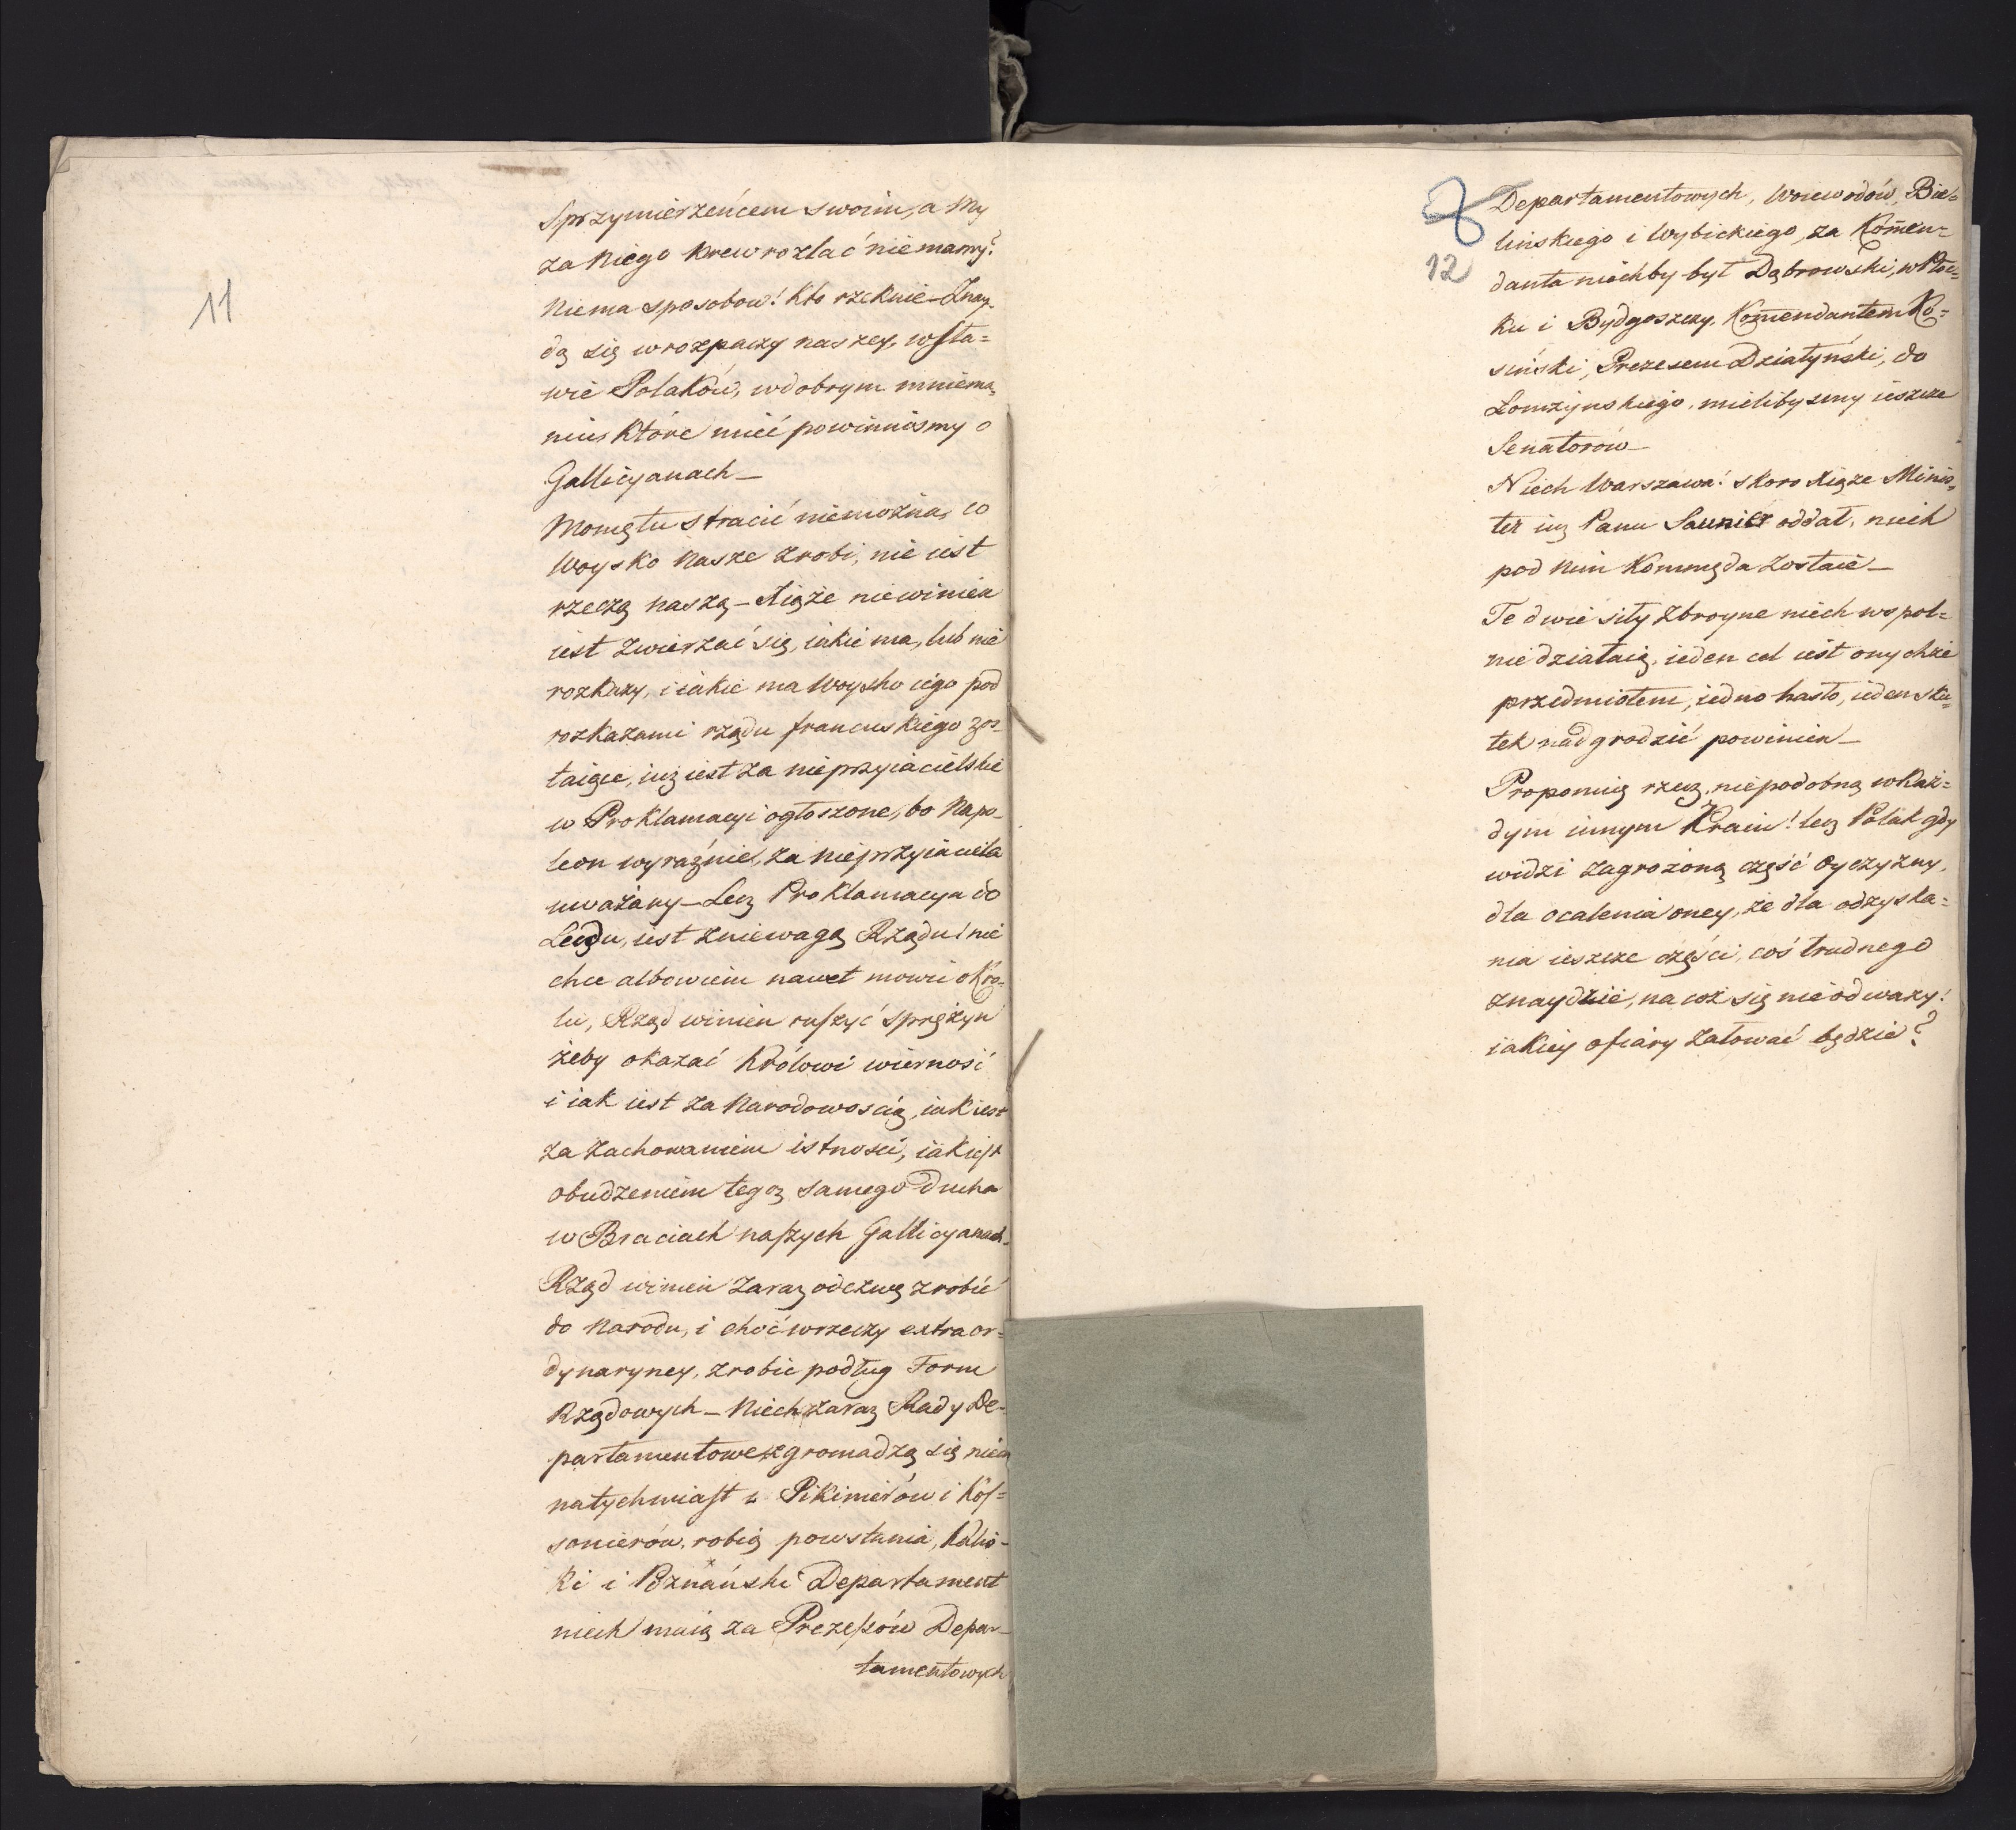 11
Sprzymierzeńcem swoim, a my
za niego krew rozlać nie mamy?
Niema sposobow! kto rzeknie – Znay-
dą się w rozpaczy naszey, w sła=
wie Polaków, w dobrym mniema,
niu, które mieć powinniśmy o
Gallicyanach –
Momętu stracić niemożna, co
Woysko nasze zrobi, nie iest
rzeczą naszą – Xiąże niewinien
iest zwierzać się, iakie ma, lub nie
rozkazy, i iakie ma Woysko iego pod
rozkazami rządu francuskiego zos-
taiące, iuż iest za nieprzyiacielskie
w Proklamacyi ogłoszone, bo Napo-
leon wyraźnie, za nieprzyiaciela
uważany – Lecz Proklamacya do
Ludu, iest zniewagą Rządu! nie
chce albowiem nawet mowić o Kro-
lu, Rząd winien ruszyć sprężyn
żeby okazać Królowi wierność
i iak iest za Narodowością, iak iest
za zachowaniem istności, iak iest
obudzeniem tegoż samego Ducha
w Braciach naszych Gallicyanach.
Rząd winien zaraz odezwę zrobić
do Narodu, i choć w rzeczy extraor=
dynaryney, zrobić podług Form
Rządowych – Niech zaraz Rady De-
partamentowe zgromadzą się niech
natychmiast z Pikinierów i Kos=
sonierów, robią powstania, Kalis-
ki i Poznański Departament
niech maią za Prezesów Depar-
tamentowych
8
12
Departamentowych, Woiewodów, Bie-
lińskiego i Wybickiego, za Komen=
danta niechby był Dąbrowski, w Płoc-
ku i Bydgoszczy, Komendantem Ko=
siński, Prezesem Działyński, do
Łomżyńskiego, mielibysmy ieszcze
Senatorów –
Niech Warszawa! skoro Xiąże Minis,
ter iuż Panu Saunier oddał, niech
pod nim Kommęda zostaie –
Te dwie siły zbroyne niech wspol=
nie działaią, ieden cel iest onychże
przedmiotem, iedno hasło, ieden sku-
tek nadgrodzić powinien –
Proponuię rzecz, niepodobną w każ=
dym innym Kraiu! lecz Polak gdy
widzi zagrożoną część Oyczyzny,
dla ocalenia oney, że dla odzyska=
nia ieszcze części, coś trudnego
znaydzie, na coż się nie odważy!
iakiey ofiary żałować będzie?